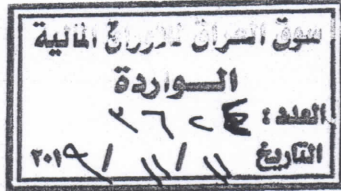 سوق العراق للاوراق المالية
الـــواردة
العدد :
التاريخ ١١ / ١١ / ٢٠١٩